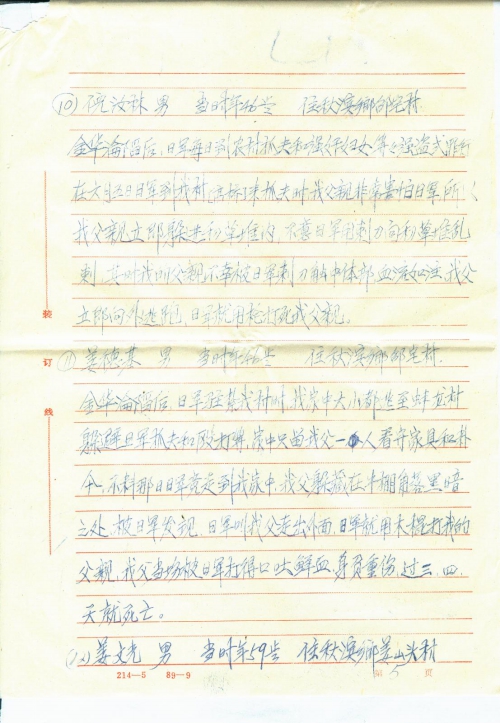 (10) 倪汝林 男 当时年46岁 住秋滨乡邵宅村.
金华沦陷后,日军每日到农村抓夫和强奸妇女等々强盗式
在六月 日日军到我村 来抓夫时我父亲非常害怕日军所以
我父亲立即躲进稻草堆内,不意日军用刺刀向稻草堆乱
刺,其时我的父亲不幸被日军刺刀 中体部血流如注,我父
立即向外逃跑,日军就用枪打死我父亲。
(11) 姜德基 男 当时年46岁 住秋滨乡邵宅村.
金华沦陷后,日军驻紥我村时,我家中大小都逃至 村
躲避日军抓夫和殴打 ,家中只留我父一人看守家具和
,不料那日日军竟走到我家中,我父躲藏在牛棚角落黑暗
之处,被日军发现,日军叫我父走出外面,日军就用木棍打我的
父亲,我父当场被日军打得口吐鲜血,身负重伤,过三、四
天就死亡。
(12) 姜文光 男 当时年59岁 住秋滨乡姜山头村
装
订
线
214—5 89—9
第 5 页